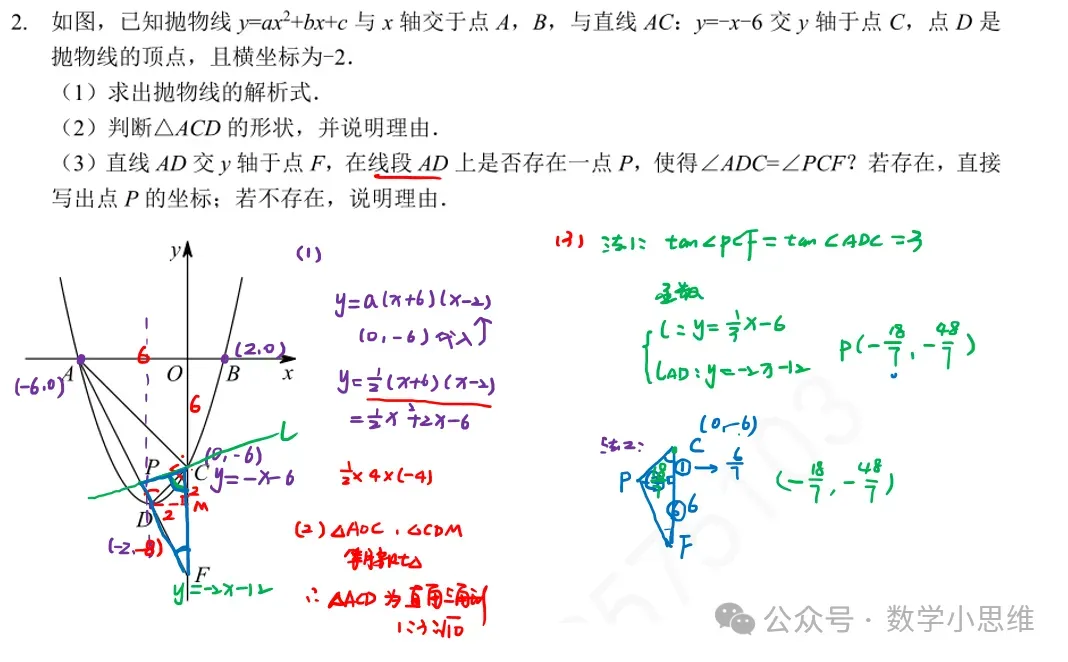 2. 如图，已知抛物线 y=ax²+bx+c 与 x 轴交于点 A，B，与直线 AC：y=-x-6 交 y 轴于点 C，点 D 是
抛物线的顶点，且横坐标为-2．
（1）求出抛物线的解析式．
（2）判断△ACD 的形状，并说明理由．
（3）直线 AD 交 y 轴于点 F，在线段 AD 上是否存在一点 P，使得∠ADC=∠PCF？若存在，直接
写出点 P 的坐标；若不存在，说明理由．
y
6
O
B
x
A
(2,0)
(-6,0)
6
L
P
(0,-6)
C
y=-x-6
2
M
D
2
(-2,-8)
F
y=-2x-12
(1)
y=a(x+6)(x-2)
(0,-6)代入↑
y=½(x+6)(x-2)
=½x²+2x-6
½×4×(-4)
(2) △AOC、△CDM
等腰Rt△
∴ △ACD为直角三角形
1:3:√10
(3) 法1: tan∠PCF=tan∠ADC=3
l: y=⅓x-6
lAD: y=-2x-12
P(-18/7, -48/7)
法2:
C
(0,-6)
P
①→6/7
⑥6
F
(-18/7, -48/7)
575103
公众号·数学小思维